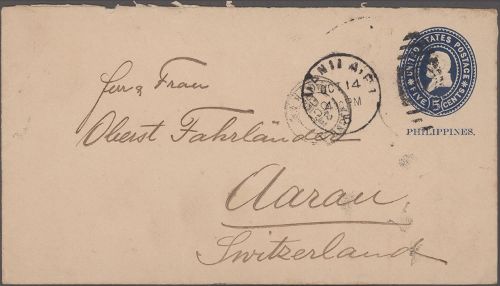 UNITED STATES POSTAGE
FIVE 5 CENTS
PHILIPPINES.
OCT 14
PM
Frau
Oberst Fahrlander
Aarau
Switzerland